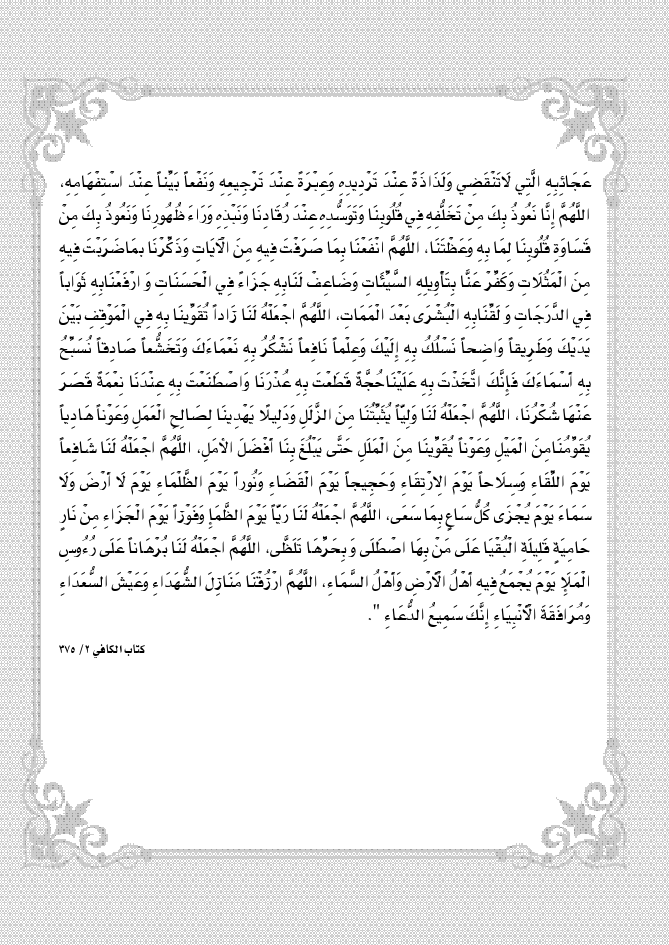 عَجَائِبِهِ الَّتِي لَاتَنْقَضِي وَلَذَاذَةً عِنْدَ تَرْدِيدِهِ وَعِبْرَةً عِنْدَ تَرْجِيعِهِ وَنَفْعاً بَيِّناً عِنْدَ اسْتِفْهَامِهِ،
اللَّهُمَّ إِنَّا نَعُوذُ بِكَ مِنْ تَخَلُّفِهِ فِي قُلُوبِنَا وَتَوَسُّدِهِ عِنْدَ رُقَادِنَا وَنَبْذِهِ وَرَاءَ ظُهُورِنَا وَنَعُوذُ بِكَ مِنْ
قَسَاوَةِ قُلُوبِنَا لِمَا بِهِ وَعَظْتَنَا، اللَّهُمَّ انْفَعْنَا بِمَا صَرَفْتَ فِيهِ مِنَ الْآيَاتِ وَذَكِّرْنَا بِمَاضَرَبْتَ فِيهِ
مِنَ الْمَثُلَاتِ وَكَفِّرْ عَنَّا بِتَأْوِيلِهِ السَّيِّئَاتِ وَضَاعِفْ لَنَابِهِ جَزَاءً فِي الْحَسَنَاتِ وَ ارْفَعْنَابِهِ ثَوَاباً
فِي الدَّرَجَاتِ وَ لَقِّنَابِهِ الْبُشْرَى بَعْدَ الْمَمَاتِ، اللَّهُمَّ اجْعَلْهُ لَنَا زَاداً تُقَوِّينَا بِهِ فِي الْمَوْقِفِ بَيْنَ
يَدَيْكَ وَطَرِيقاً وَاضِحاً نَسْلُكُ بِهِ إِلَيْكَ وَعِلْماً نَافِعاً نَشْكُرُ بِهِ نَعْمَاءَكَ وَتَخَشُّعاً صَادِقاً نُسَبِّحُ
بِهِ أَسْمَاءَكَ فَإِنَّكَ اتَّخَذْتَ بِهِ عَلَيْنَاحُجَّةً قَطَعْتَ بِهِ عُذْرَنَا وَاصْطَنَعْتَ بِهِ عِنْدَنَا نِعْمَةً قَصَرَ
عَنْهَا شُكْرُنَا، اللَّهُمَّ اجْعَلْهُ لَنَا وَلِيّاً يُثَبِّتُنَا مِنَ الزَّلَلِ وَدَلِيلًا يَهْدِينَا لِصَالِحِ الْعَمَلِ وَعَوْناً هَادِياً
يُقَوِّمُنَامِنَ الْمَيْلِ وَعَوْناً يُقَوِّينَا مِنَ الْمَلَلِ حَتَّى يَبْلُغَ بِنَا أَفْضَلَ الْأَمَلِ، اللَّهُمَّ اجْعَلْهُ لَنَا شَافِعاً
يَوْمَ اللِّقَاءِ وَسِلَاحاً يَوْمَ الِارْتِقَاءِ وَحَجِيجاً يَوْمَ الْقَضَاءِ وَنُوراً يَوْمَ الظَّلْمَاءِ يَوْمَ لَا أَرْضَ وَلَا
سَمَاءَ يَوْمَ يُجْزَى كُلُّ سَاعٍ بِمَا سَعَى، اللَّهُمَّ اجْعَلْهُ لَنَا رَيّاً يَوْمَ الظَّمَإِ وَفَوْزاً يَوْمَ الْجَزَاءِ مِنْ نَارٍ
حَامِيَةٍ قَلِيلَةِ الْبُقْيَا عَلَى مَنْ بِهَا اصْطَلَى وَ بِحَرِّهَا تَلَظَّى، اللَّهُمَّ اجْعَلْهُ لَنَا بُرْهَاناً عَلَى رُءُوسِ
الْمَلَإِ يَوْمَ يُجْمَعُ فِيهِ أَهْلُ الْأَرْضِ وَأَهْلُ السَّمَاءِ، اللَّهُمَّ ارْزُقْنَا مَنَازِلَ الشُّهَدَاءِ وَعَيْشَ السُّعَدَاءِ
وَمُرَافَقَةَ الْأَنْبِيَاءِ إِنَّكَ سَمِيعُ الدُّعَاءِ ".
كتاب الكافي ٢/ ٣٧٥